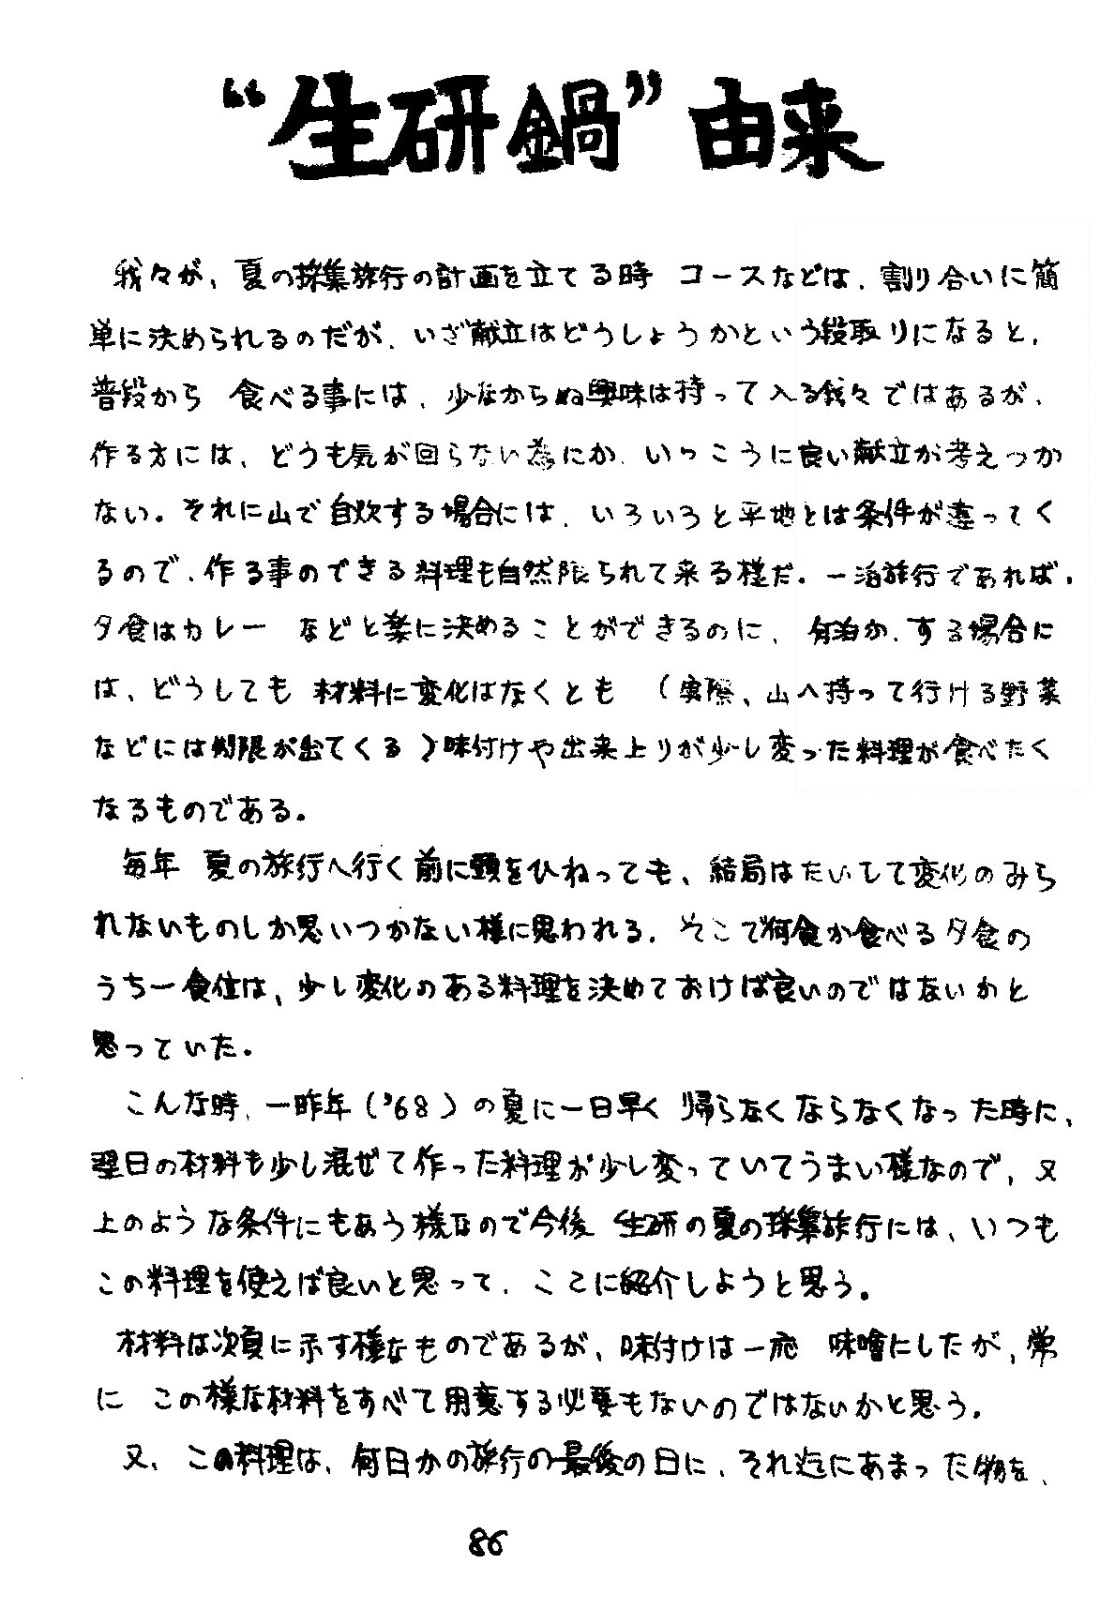 “生研鍋”由来
我々が、夏の採集旅行の計画を立てる時 コースなどは、割り合いに簡
単に決められるのだが、いざ献立はどうしようかという段取りになると、
普段から 食べる事には、少なからぬ興味は持って入る我々ではあるが、
作る方には、どうも気が回らない為にか、いっこうに良い献立が考えつか
ない。それに山で自炊する場合には、いろいろと平地とは条件が違ってく
るので、作る事のできる料理も自然限られて来る様だ。一泊旅行であれば、
夕食はカレー などと楽に決めることができるのに、何泊か、する場合に
は、どうしても 材料に変化はなくとも （実際、山へ持って行ける野菜
などには制限が出てくる）味付けや出来上りが少し変った料理が食べたく
なるものである。
毎年 夏の旅行へ行く前に頭をひねっても、結局はたいして変化のみら
れないものしか思いつかない様に思われる。そこで何食か食べる夕食の
うち一食位は、少し変化のある料理を決めておけば良いのではないかと
思っていた。
こんな時、一昨年（'68）の夏に一日早く帰らなくならなくなった時に、
翌日の材料も少し混ぜて作った料理が少し変っていてうまい様なので、又
上のような条件にもあう様なので今後 生研の夏の採集旅行には、いつも
この料理を使えば良いと思って、ここに紹介しようと思う。
材料は次頁に示す様なものであるが、味付けは一応 味噌にしたが、常
に この様な材料をすべて用意する必要もないのではないかと思う。
又、この料理は、何日かの旅行の最後の日に、それ迄にあまった物を、
86